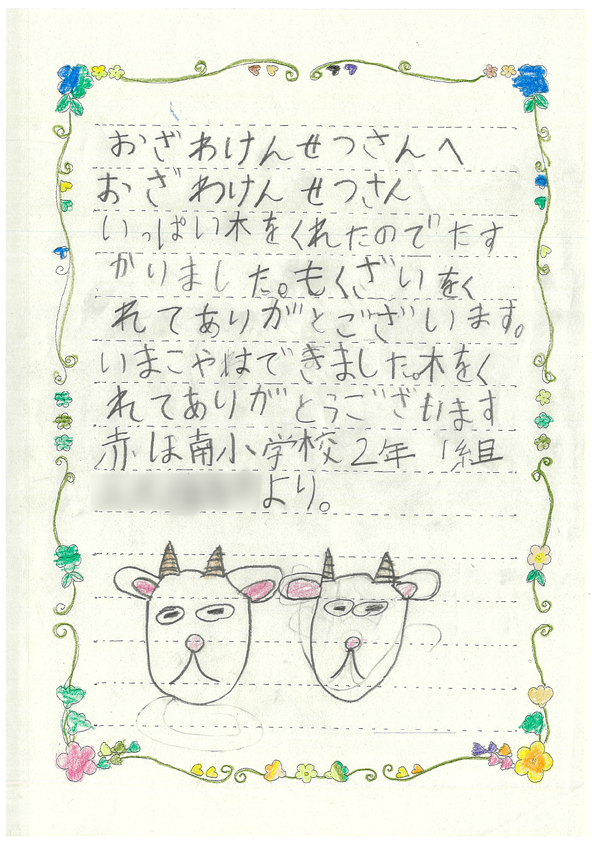 おざわけんせつさんへ
おざわけんせつさん
いっぱい木をくれたのでたす
かりました。もくざいをく
れてありがとございます。
いまこやはできました。木をく
れてありがとうございます
赤ほ南小学校2年1組
より。